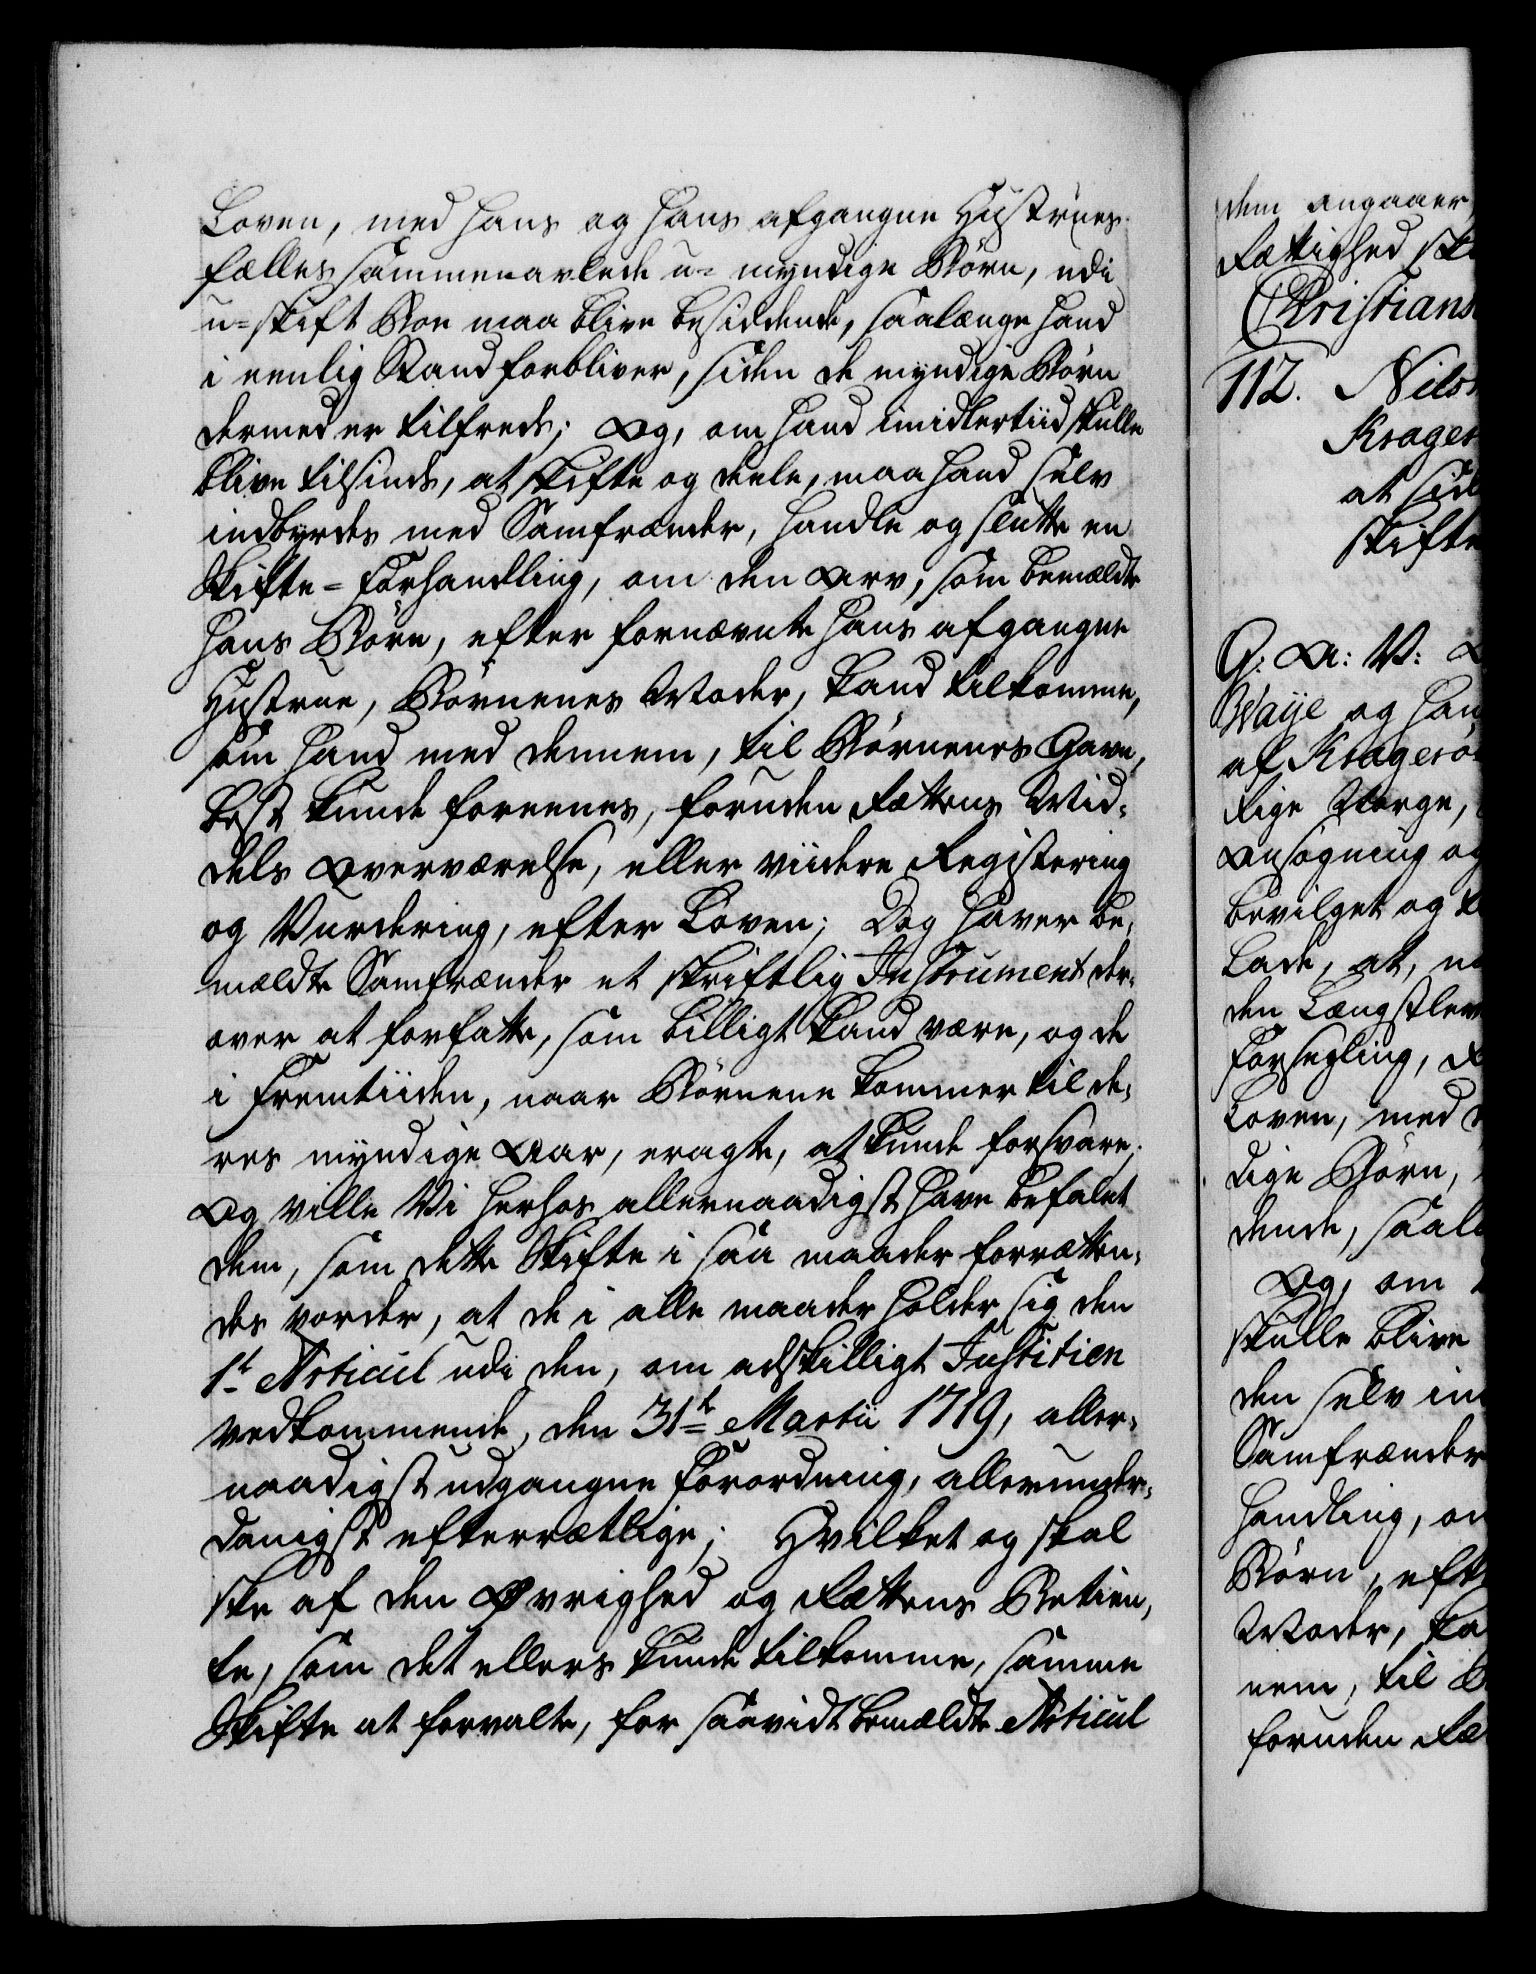 Loven, med hans og hans afgangne Hustrues
fælles sammenavlede u= myndige Børn, udi
u=skift Boe maa blive besiddende, saalænge hand
i eenlig Stand forbliver, siden de myndige Børn
dermed er tilfreds; Og, om hand imidlertiid skulle
blive tilsinds, at skifte og deele, maa hand selv
indbyrdes med Samfrænder, handle og slutte en
Skifte=Forhandling, om den Arv, som bemældte
hans Børn, efter fornævnte hans afgangne
Hustrue, Børnenes Moder, kand tilkomme,
som hand med dennem, til Børnenes Gavn,
best kunde foreenes, foruden Rættens Mid=
dels Overværelse, eller viidere Registering
og Vurdering, efter Loven; Dog haver be=
mældte Samfrænder et skriftlig Instrument der=
over at forfatte, som billigt kand være, og de
i Fremtiiden, naar Børnene kommer til de=
res myndige Aar, eragte, at kunde forsvare;
Og ville Vi herhos allernaadigst have befalet
dem, som dette Skifte i saa maader forrætten=
des vorder, at de i alle maader holder sig den
1t Articul udi den, om adskilligt Justitien
vedkommende, den 31t Martii 1719, aller=
naadigst udgangne Forordning, allerunder=
danigst efterrætlige; Hvilket og skal
ske af den Øvrighed og Rættens Betien=
te, som det ellers kunde tilkomme, samme
Skifte at forvalte, for saavidt bemældte Articul
dem angaaer,
Rættighed
Christians
112. Nils
Krager
at sid
skifte
G: A: V:
Waije og han
af Kragerøe
Rige Norge,
Ansøgning og
bevilget og
Lade, at,
den Længstlev
Forsegling,
Loven, med
dige Børn,
dende, saal
Og, om
skulle blive
den selv in
Samfrænder
handling, om
Børn, eft
Moder, ka
nem, til
foruden Ræ